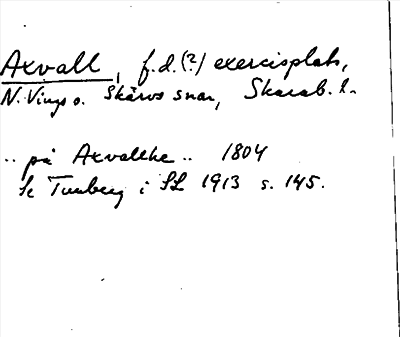 Axvall, f.d.(?) exercisplats,
N. Vings o. Skärvs snar, Skarab. l.
.. på Axvallhe .. 1804
Se Tunberg i SL 1913 s. 145.